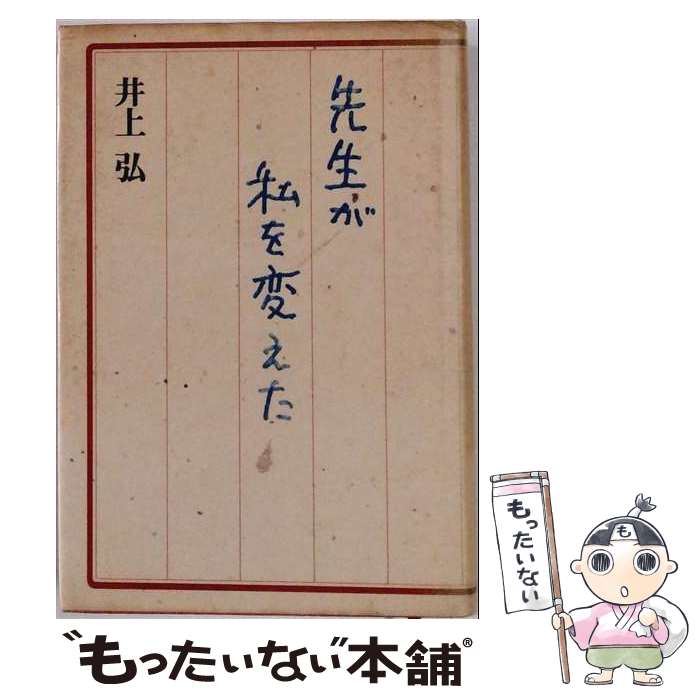 先生が
私を変えた
井上 弘
もったいない
も
"もったいない"本舗®